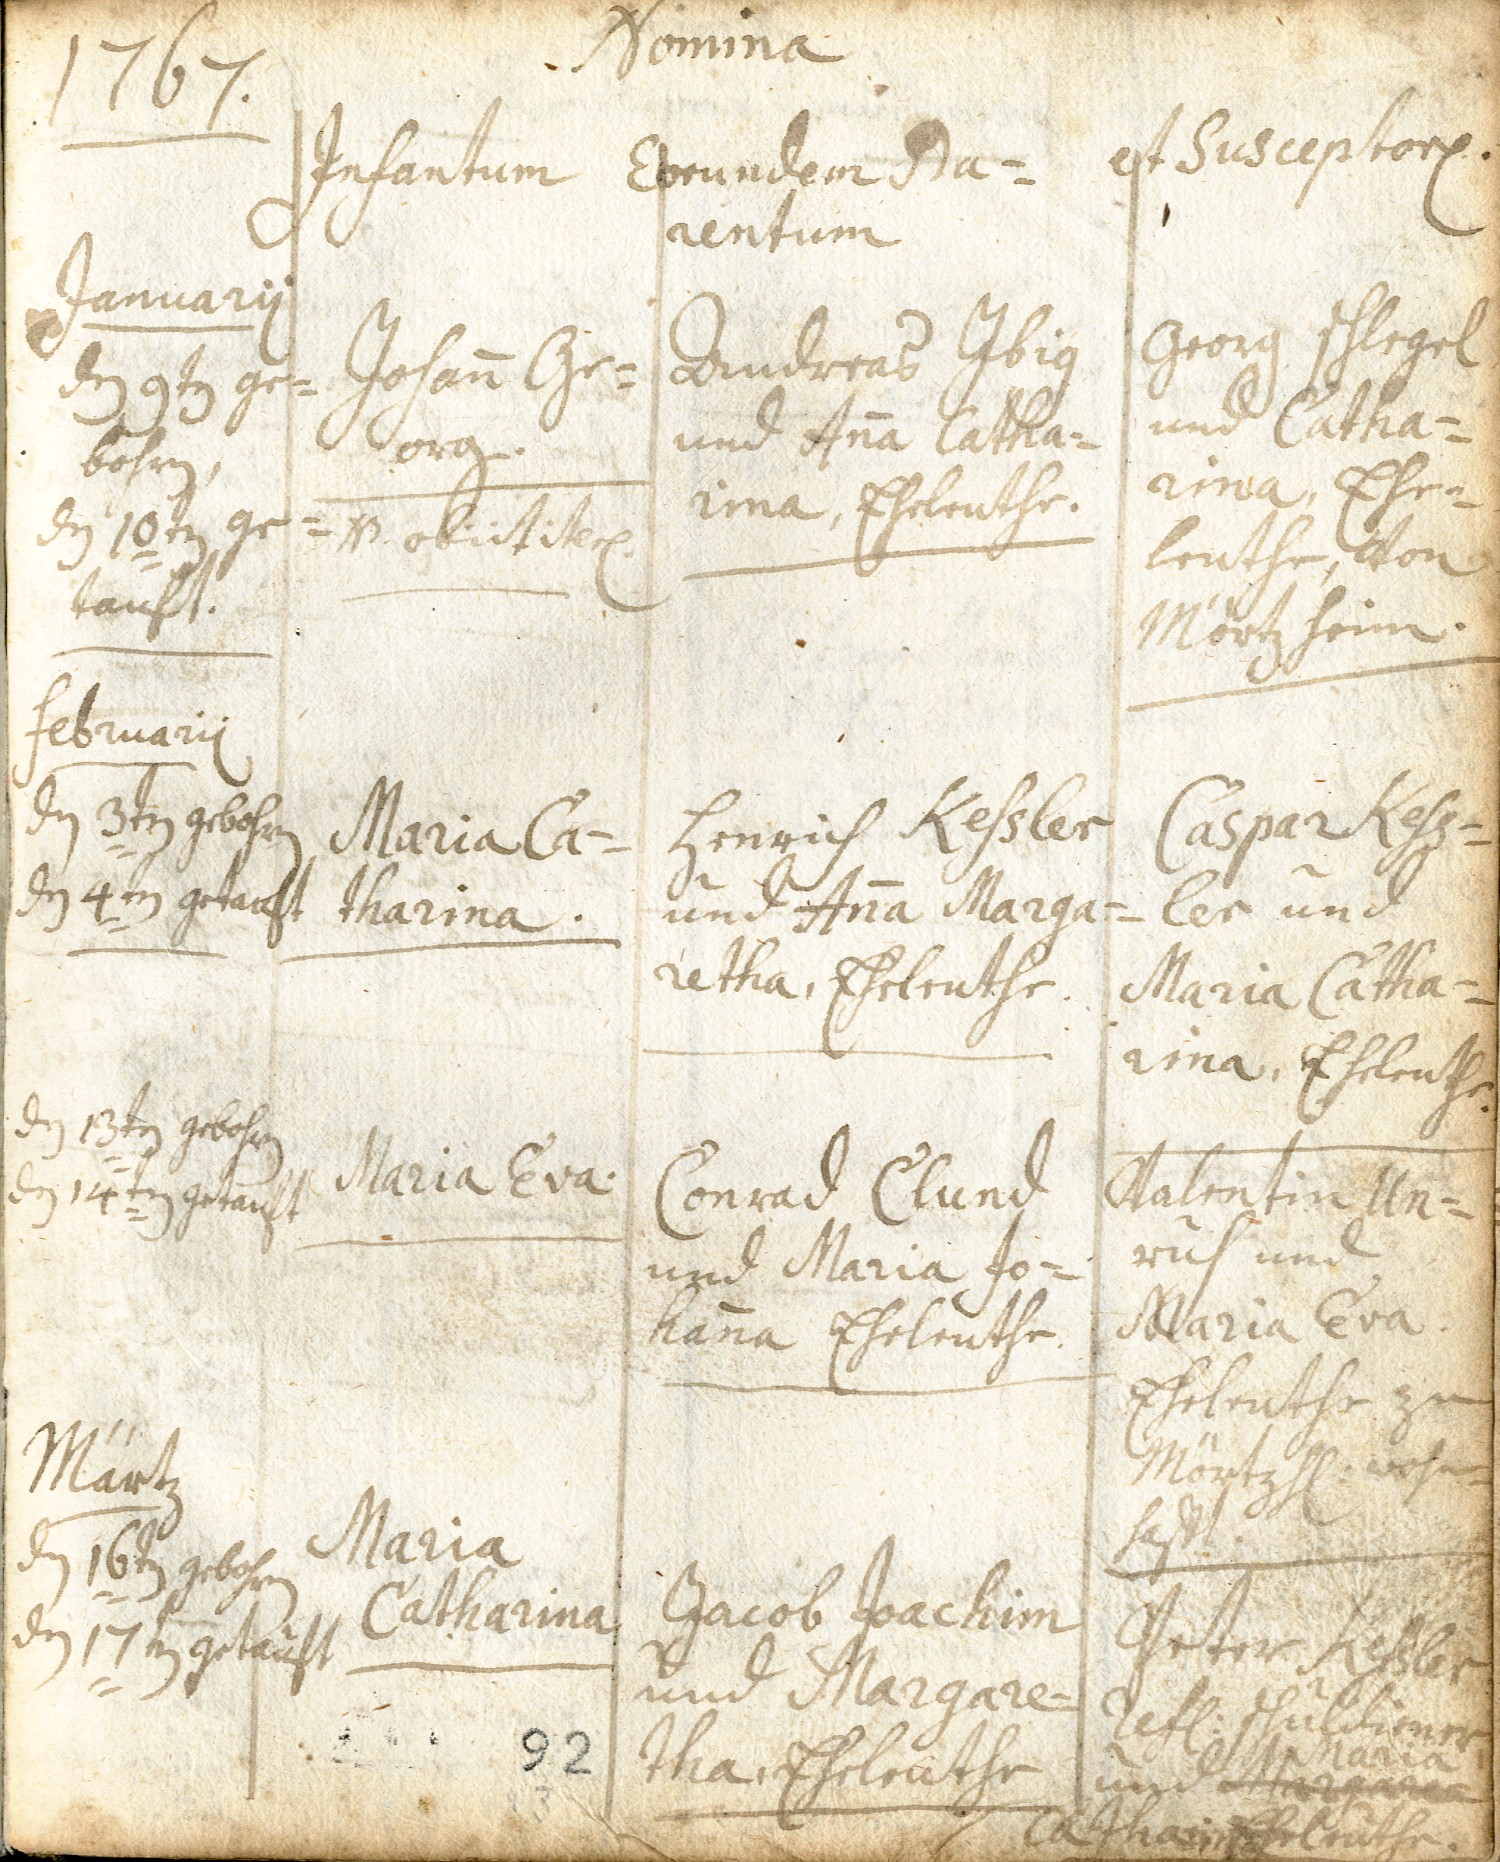 1767.
Nomina
Infantum
Eorundem Pa=
rentum
et Susceptor.
Januarij
den 9ten ge=
bohren,
den 10ten ge=
tauft.
Johann Ge=
org.
NB. obiit iter.
Andreas Ibig
und Anna Catha=
rina, Eheleuthe.
Georg Schlegel
und Catha=
rina, Ehe=
leuthe, Von
Mörtzheim.
Februarij
den 3ten gebohren
den 4ten getauft
Maria Ca=
tharina.
Henrich Kessler
und Anna Marga=
retha, Eheleuthe.
Caspar Kess=
ler und
Maria Catha=
rina, Eheleuthe.
den 13ten gebohren
den 14ten getauft
Maria Eva.
Conrad Clund
und Maria Jo=
hanna Eheleuthe.
Valentin Un=
ruh und
Maria Eva.
Eheleuthe zu
Mörtzh: wohn=
hafft.
Märtz
den 16ten gebohren
den 17ten getauft
Maria
Catharina
Jacob Joachim
und Margare=
tha, Eheleuthe
Peter Kessler
Schuldiener
und Maria
Catharina Eheleuthe.
92